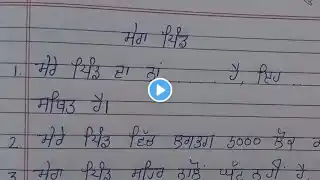 ਮੇਰਾ ਪਿੰਡ
1. ਮੇਰੇ ਪਿੰਡ ਦਾ ਨਾਂ ........ ਹੈ, ਇਹ ...
ਸਥਿਤ ਹੈ।
2. ਮੇਰੇ ਪਿੰਡ ਵਿੱਚ ਲਗਭਗ 5000 ਲੋਕ
3. ਮੇਰਾ ਪਿੰਡ ਸ਼ਹਿਰ ਨਾਲੋਂ ਘੱਟ ਨਹੀਂ ਹੈ,